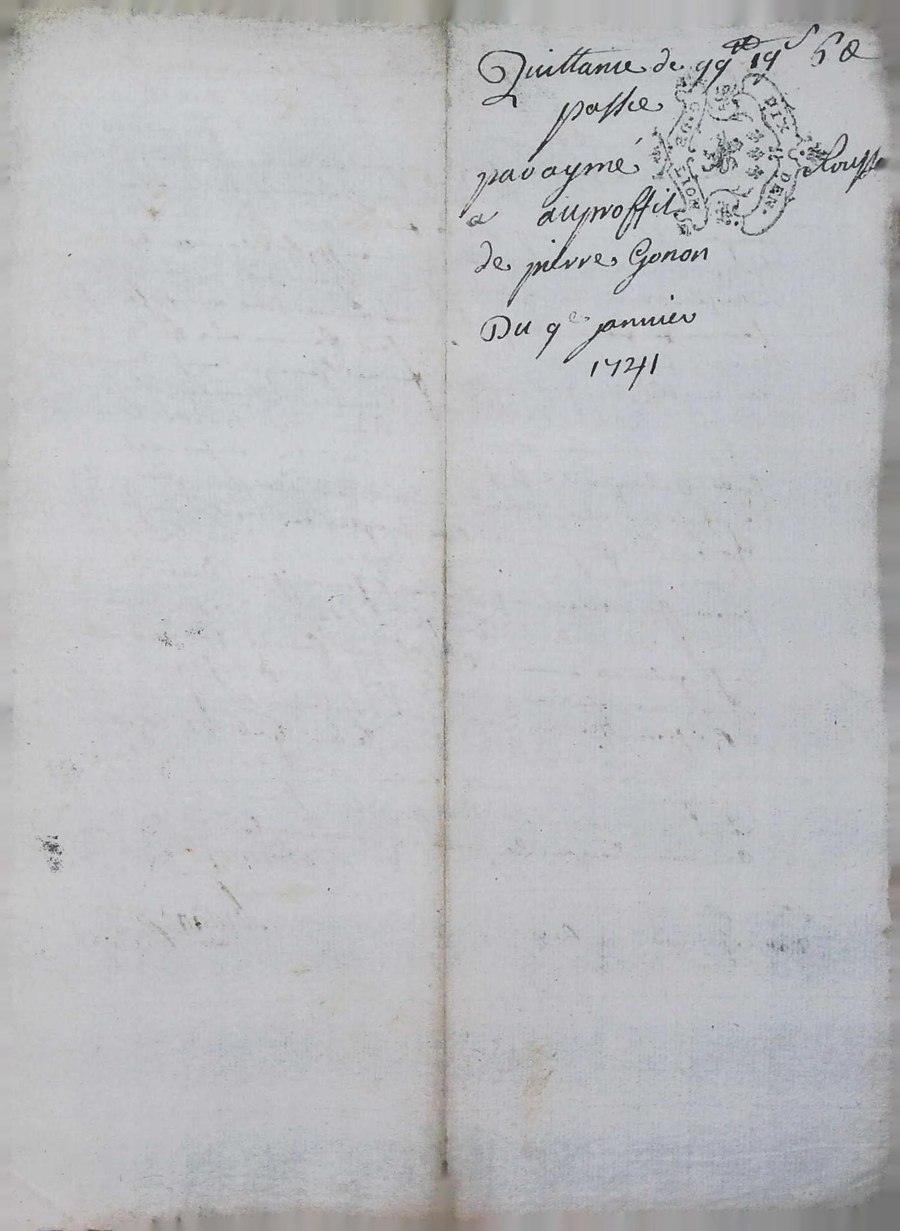 Quittance de 99ᵗᵗ 19ˢ 6 d
passée
par aymé
a auproffit
de pierre Gonon
Du 9ᵉ janvier
1741
DIX DEN.
LION